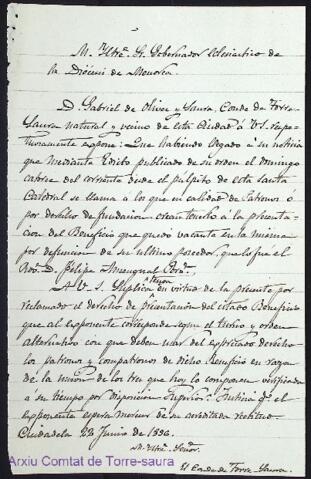 M. Iltre. Sr. Gobernador Eclesiastico de
la Diócesi de Menorca.
D. Gabriel de Olives y Saura, Conde de Torre-
Saura natural y vecino de esta Ciudad á V.S. respe-
tuosamente espone: Que habiendo llegado a su noticia
que mediante Edicto publicado de su orden el domingo
catorse del corriente desde el púlpito de esta santa
Catedral se llama a los que en calidad de Patronos ó
por derecho de fundacion crean tenerlo á la presenta-
cion del Beneficio que quedó vacante en la misma
por defuncion de su ultimo poseedor, que lo fue el
Rdo. D. Felipe Menegual Pbro.
A V. S. Suplica en virtud de la presente por
reclamado el derecho de presentacion del citado Beneficio
que al esponente corresponde segun el turno y orden
alternativo con que deben usar del espresado derecho
los patronos y compatronos de dicho Beneficio en razon
de la union de los tres que hoy lo componen verificada
a su tiempo por Disposicion Superior. Justicia qe. el
esponente espera merecer de su acreditada rectitud.
Ciudadela 22 Junio de 1896.
M. Iltre. Señor.
El Conde de Torre-Saura.
Arxiu Comtat de Torre-saura